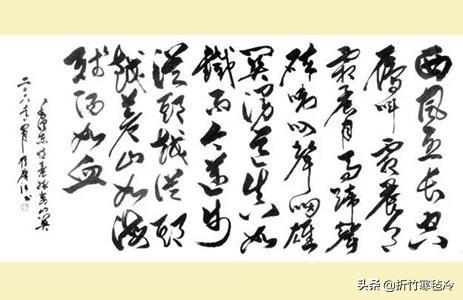 西風烈长空
雁叫霜晨月
霜晨月馬蹄聲
碎喇叭聲咽雄
関漫道真如
鐵而今邁步
從頭越從頭
越蒼山如海
殘陽如血
毛澤東憶秦娥婁山関
头条 @折竹寒毡冷